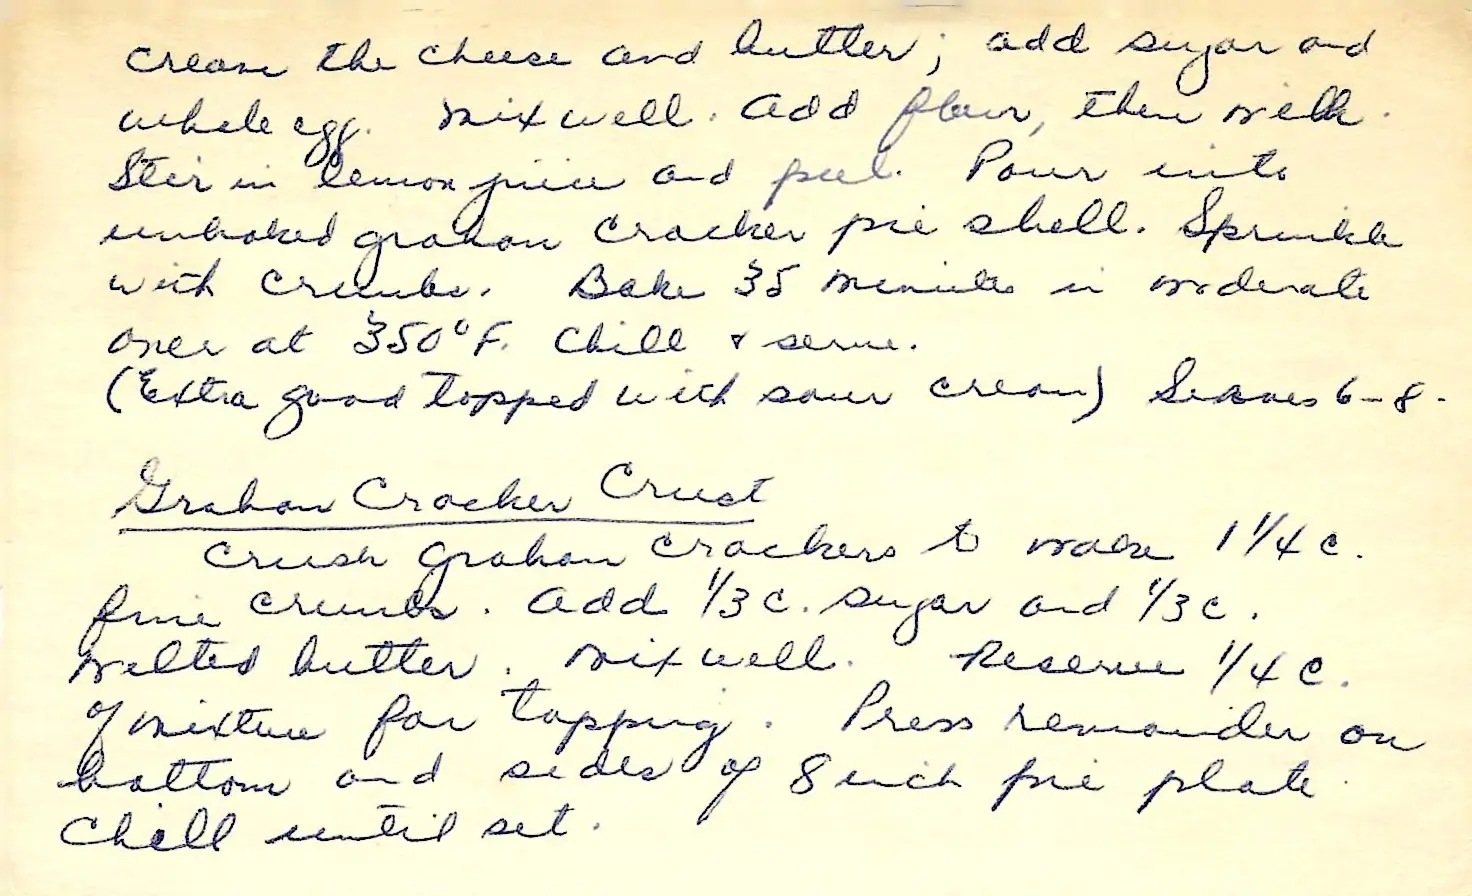 Cream the cheese and butter; add sugar and
whole egg. Mix well. Add flour, then milk.
Stir in lemon juice and peel. Pour into
unbaked graham cracker pie shell. Sprinkle
with crumbs. Bake 35 minutes in moderate
oven at 350°F. Chill & serve.
(Extra good topped with sour cream) Serves 6-8.
Graham Cracker Crust
Crush graham crackers to make 1 1/4 c.
fine crumbs. Add 1/3 c. sugar and 1/3 c.
melted butter. Mix well. Reserve 1/4 c.
of mixture for topping. Press remainder on
bottom and sides of 8 inch pie plate.
Chill until set.